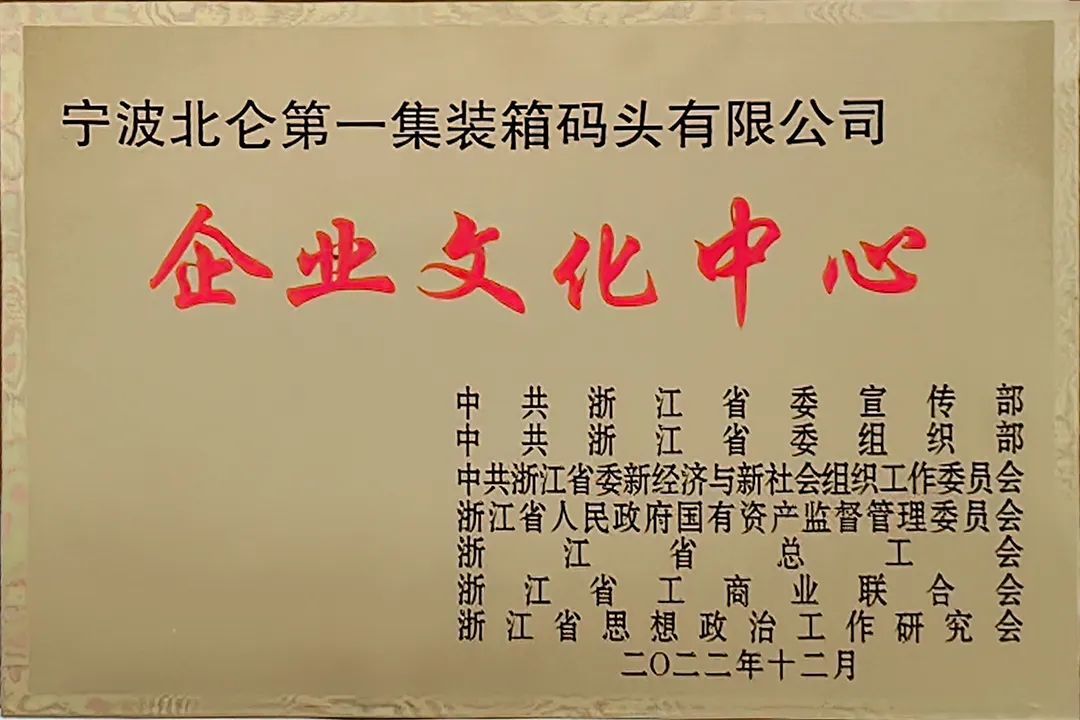 宁波北仑第一集装箱码头有限公司
企业文化中心
中共浙江省委宣传部
中共浙江省委组织部
中共浙江省委新经济与新社会组织工作委员会
浙江省人民政府国有资产监督管理委员会
浙江省总工会
浙江省工商业联合会
浙江省思想政治工作研究会
二〇二二年十二月